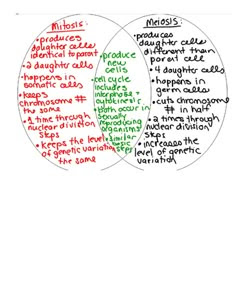 Mitosis:
• produces
daughter cells
identical to parent
• 2 daughter cells
• happens in
somatic cells
• keeps
chromosome #
the same
• 1 time through
nuclear division
steps
• keeps the level
of genetic variation
the same
• produce
new
cells
• cell cycle
includes
interphase +
cytokinesis
• both occur in
sexually
reproducing
organisms
• similar
basic
steps
Meiosis:
• produces
daughter cells
different than
parent cell
• 4 daughter cells
• happens in
germ cells
• cuts chromosome
# in half
• 2 times through
nuclear division
steps
• increases the
level of genetic
variation